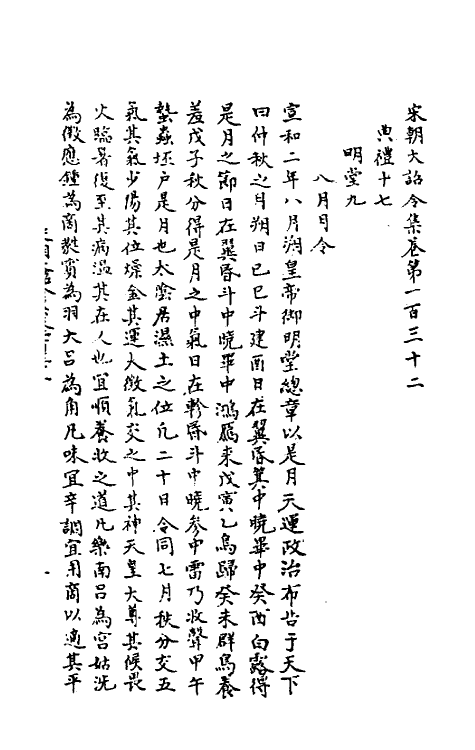 宋朝大詔令集卷第一百三十二
典禮十七
明堂九
八月月令
宣和二年八月朔皇帝御明堂總章以是月天運政治布告于天下
曰仲秋之月朔日己巳斗建酉日在翼昏箕中曉畢中癸酉白露得
是月之節日在翼昏斗中曉畢中鴻鴈来戊寅乙鳥歸癸未群鳥養
羞戊子秋分得是月之中氣日在軫昏斗中曉參中雷乃收聲甲午
蟄蟲坯户是月也太陰居濕土之位凡二十日令同七月秋分交五
氣其氣少陽其位燥金其運火徵氣交之中其神天皇大尊其候畏
火臨暑復至其病温其在人也宜順養收之道凡樂南吕為宫姑洗
為徵應鍾為商蕤賓為羽大吕為角凡味宜辛調宜用商以適其平